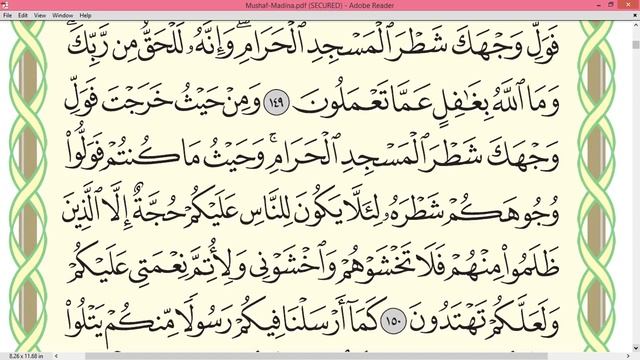 Mushaf-Madina.pdf (SECURED) - Adobe Reader
File Edit View Window Help
فَوَلِّ وَجْهَكَ شَطْرَ ٱلْمَسْجِدِ ٱلْحَرَامِ ۖ وَإِنَّهُۥ لَلْحَقُّ مِن رَّبِّكَ ۗ
وَمَا ٱللَّهُ بِغَٰفِلٍ عَمَّا تَعْمَلُونَ ١٤٩ وَمِنْ حَيْثُ خَرَجْتَ فَوَلِّ
وَجْهَكَ شَطْرَ ٱلْمَسْجِدِ ٱلْحَرَامِ ۚ وَحَيْثُ مَا كُنتُمْ فَوَلُّوا۟
وُجُوهَكُمْ شَطْرَهُۥ لِئَلَّا يَكُونَ لِلنَّاسِ عَلَيْكُمْ حُجَّةٌ إِلَّا ٱلَّذِينَ
ظَلَمُوا۟ مِنْهُمْ فَلَا تَخْشَوْهُمْ وَٱخْشَوْنِى وَلِأُتِمَّ نِعْمَتِى عَلَيْكُمْ
وَلَعَلَّكُمْ تَهْتَدُونَ ١٥٠ كَمَآ أَرْسَلْنَا فِيكُمْ رَسُولًا مِّنكُمْ يَتْلُوا۟
8.26 x 11.68 in